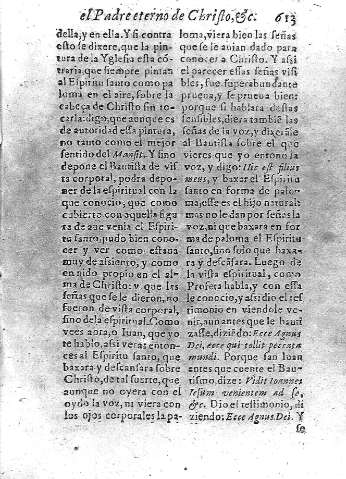 el Padre eterno de Christo, &c. 613
della, y en ella. Y si contra
esto se dixere, que la pin-
tura de la Yglesia esta cõ-
traria, que siempre pintan
al Espiritu santo como pa-
loma en el aire, sobre la
cabeça de Christo sin to-
carla: digo, que aunque es
de autoridad esta pintura,
no tanto como el mejor
sentido del Mansit. Y sino
depone el Bautista de vis-
ta corporal, podra depo-
ner de la espiritual con la
que conocio, que como
cubierto con aquella figu-
ra de aue venia el Espiri-
tu santo, pudo bien cono-
cer y ver como estaua
muy de assiento, y como
en nido propio en el al-
ma de Christo: y que las
señas que se le dieron, no
fueron de vista corporal,
sino de la espiritual. Como
vees aora, o Iuan, que yo
te hablo, assi veras enton-
ces al Espiritu santo, que
baxara y descansara sobre
Christo, de tal suerte, que
aunque no oyera con el
oydo la voz, ni viera con
los ojos corporales la pa-
loma, viera bien las señas
que se le auian dado para
conocer a Christo. Y assi
el parecer essas señas visi
bles, fue superabundante
prueua, y se prueua bien:
porque si hablara destas
sensibles, diera tambiẽ las
señas de la voz, y dixerãle
al Bautista sobre el que
vieres que yo entono la
voz, y digo: Hic est filius
meus, y baxare el Espiritu
santo en forma de palo-
ma, esse es el hijo natural:
mas no le dan por señas la
voz, ni que baxara en for
ma de paloma el Espiritu
santo, sino solo que baxa-
ra y descãsara. Luego de
la vista espiritual, como
Profera habla, y con essa
le conocio, y assi dio el tes
timonio en viendole ve-
nir, aun antes que le bauti
zasse, diziẽdo: Ecce Agnus
Dei, ecce qui tollit peccata
mundi. Porque san Iuan
antes que cuente el Bau-
tismo, dize: Vidit Ioannes
Iesum venientem ad se,
&c. Dio el testimonio, di
ziendo: Ecce Agnus Dei. Y
se